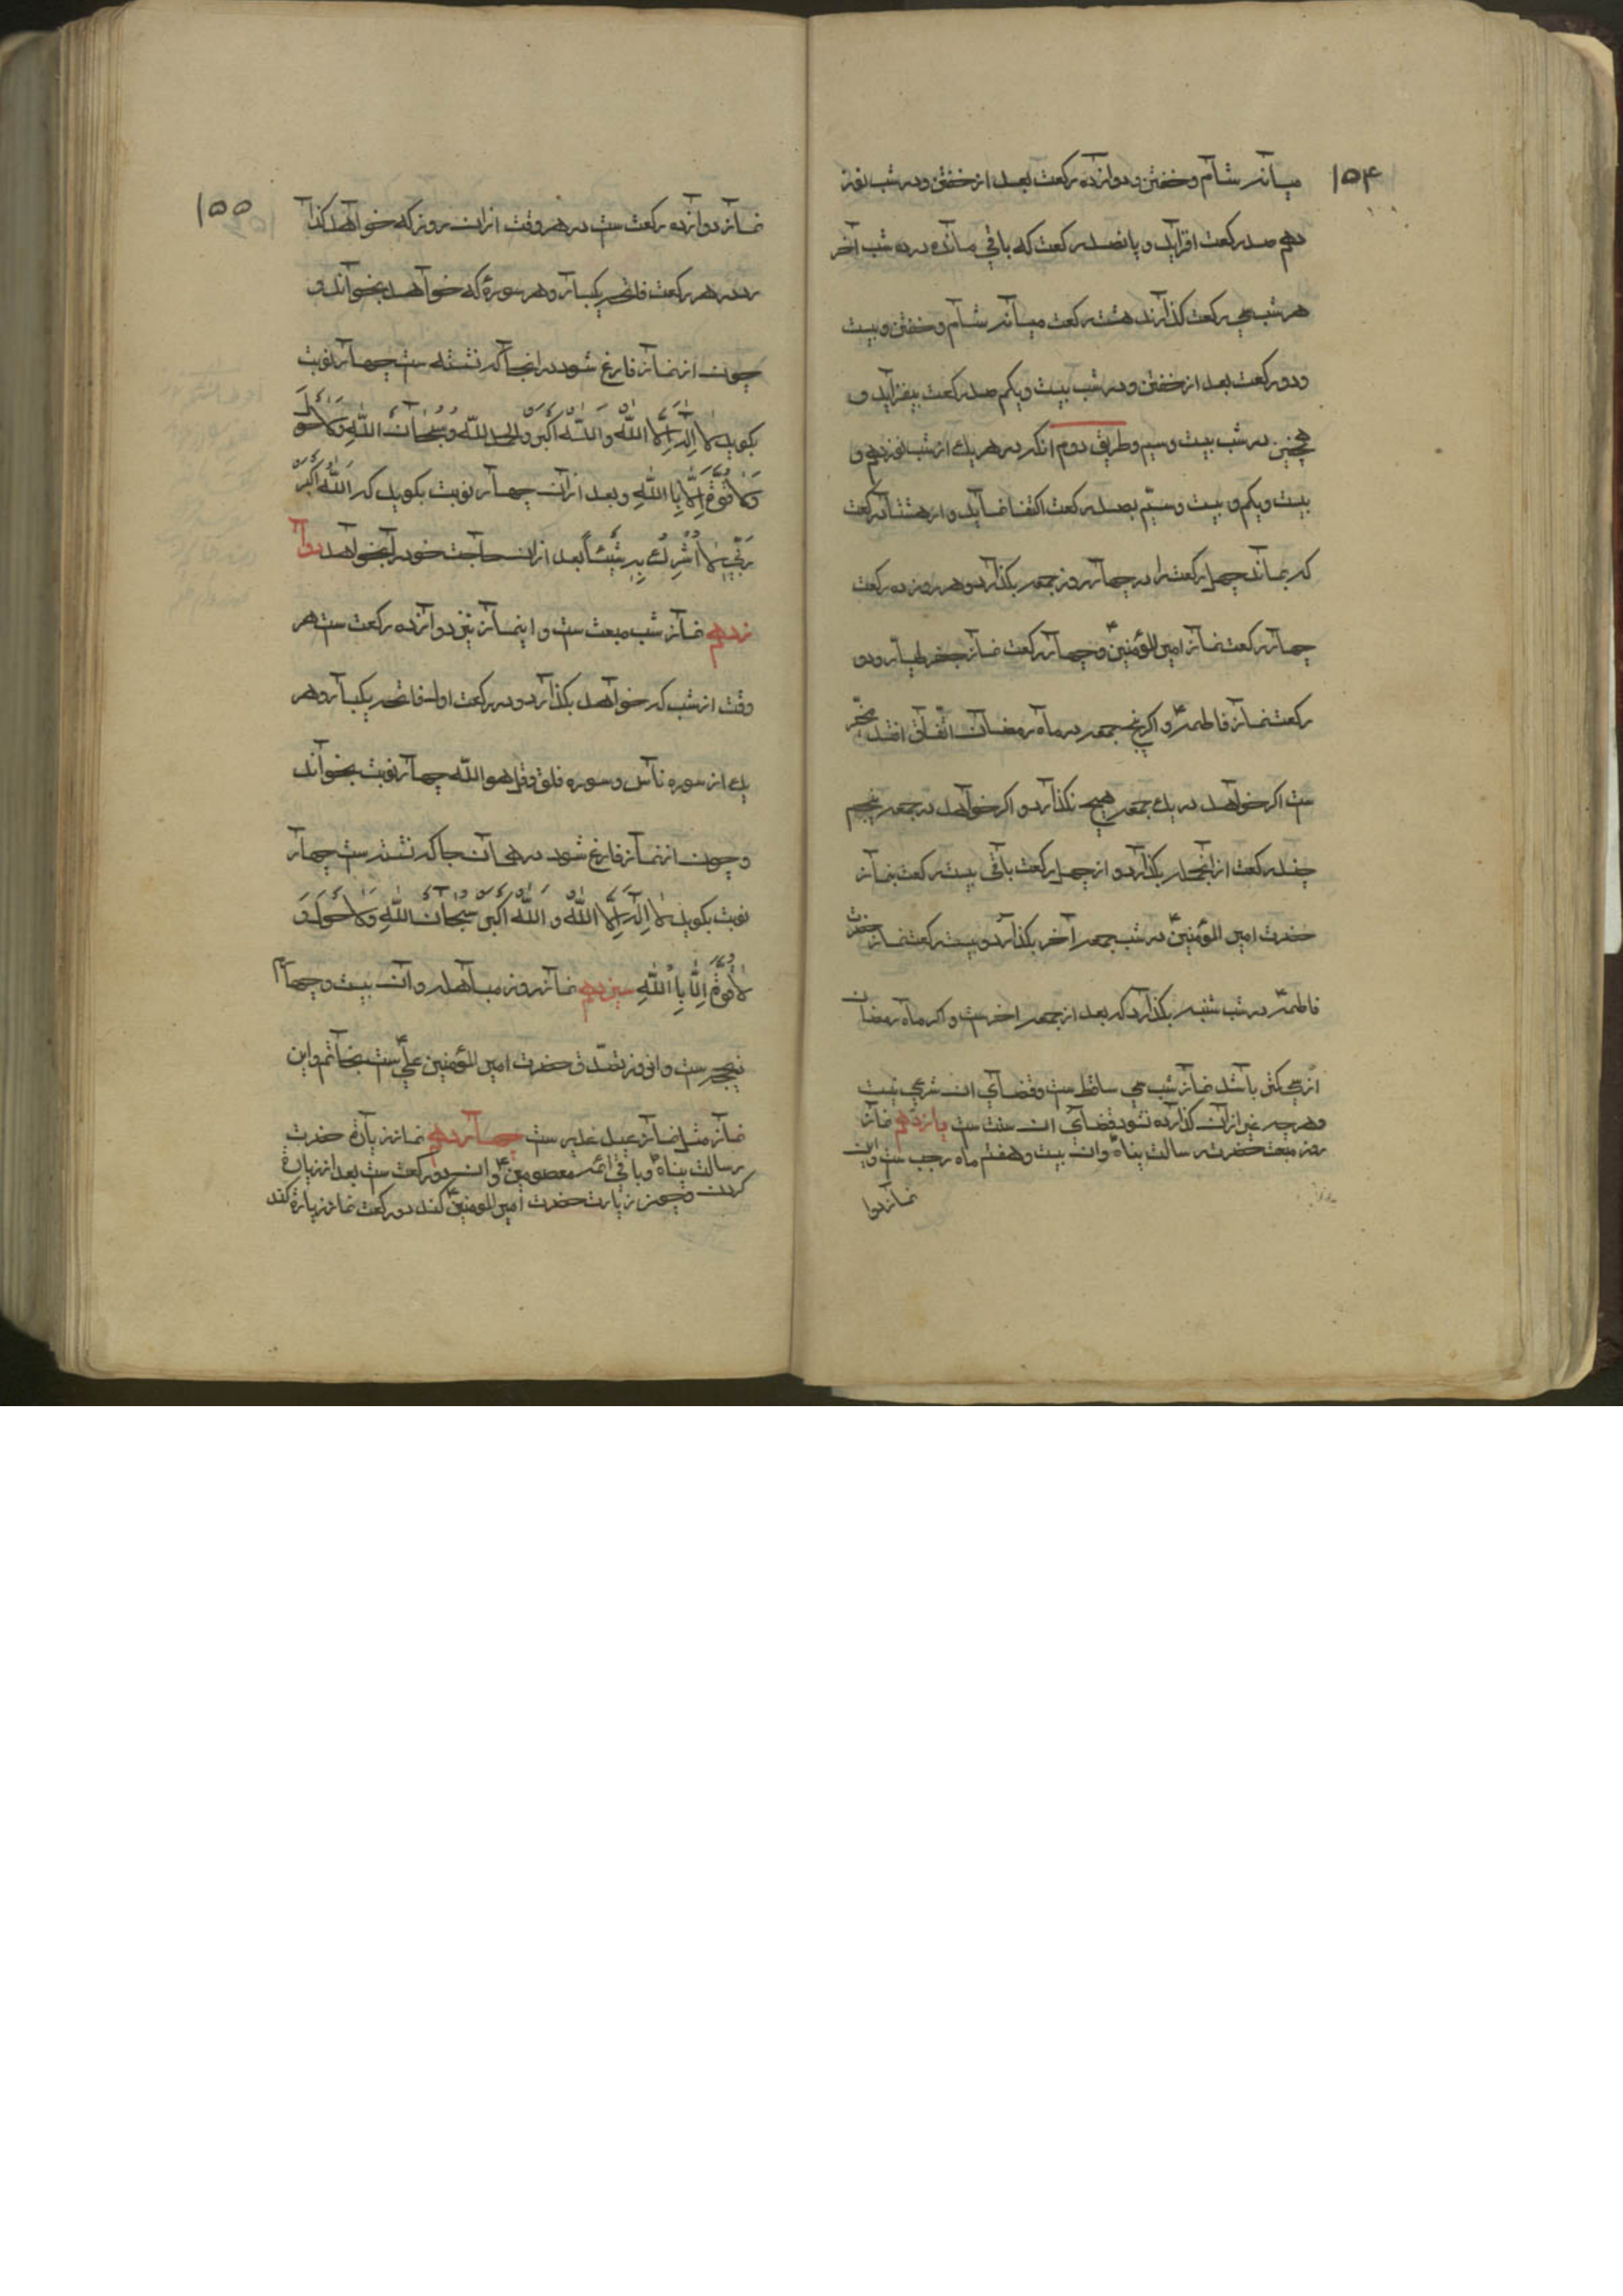 ۱۵۴
میانه شام و خفتن و دوازده رکعت بعد از خفتن و در شب نوز
دهم صد رکعت افزاید و پانصد رکعت که باقی مانده در ده شب آخر
هر شب سی رکعت کذارند هشت رکعت میانه شام و خفتن و بیست
و دو رکعت بعد از خفتن و در شب بیست و یکم صد رکعت بیفزاید و
همچنین در شب بیست و سیم و طریق دوم انکه در هر یک از شب نوزدهم و
بیست و یکم و بیست و سیّم بصد رکعت اکتفا نماید و از هشتاد رکعت
که بماند چهل رکعت را در چهار روز جمعه بکذارد و هر روز ده رکعت
چهار رکعت نماز امیر المؤمنین ع و چهار رکعت نماز جعفر طیار و دو
رکعت نماز فاطمه ع و اکر پنج جمعه در ماه رمضان اتّفاق افتد مخیّر
ست اکر خواهد در یک جمعه هیچ نکذارد و اکر خواهد در جمعه پنجم
چند رکعت از انجمله بکذارد و از چهل رکعت باقی بیست رکعت نماز
حضرت امیر المؤمنین ع در شب جمعه آخر بکذارد و بیست رکعت نماز حضرت
فاطمه ع در شب شنبه بکذارد که بعد از جمعه اخرست و اکر ماه رمضان
از سی کمتر باشد نماز شب سی ساقط ست و قضای ان شرعی نیست
و هرچه غیر از ان کذارده نشود قضای ان سنت ست یازدهم نماز
روز مبعث حضرت رسالت پناه ص و ان بیست و هفتم ماه رجب ست و این
نماز دوا
۱۵۵
نماز دوازده رکعت ست در هر وقت از ان روز که خواهد کذا
رد در هر رکعت فاتحه یکبار و هر سورۀ که خواهد بخواند و
چون از نماز فارغ شود در انجا که نشسته ست چهار نوبت
بکوید لا اِلٰهَ اِلَّا اللّٰهُ وَ اللّٰهُ اَکبَرُ وَ الحمد للّٰه وَ سُبْحَانَ اللّٰهِ وَ لا حَوْلَ
وَ لا قُوَّةَ اِلَّا بِا اللّٰهِ و بعد از ان چهار نوبت بکوید که اَللّٰهُ اَکْبَرُ
رَبِّی لا اُشْرِكُ بِهِ شَیْئاً بعد از ان حاجت خود را بخواهد دوا
زدهم نماز شب مبعث ست و اینماز نیز دوازده رکعت ست هر
وقت از شب که خواهد بکذارد و در رکعت اول فاتحه یکبار و هر
یک از سوره ناس و سوره فلق و قل هو اللّٰه چهار نوبت بخواند
و چون از نماز فارغ شود در همان جا که نشسته ست چهار
نوبت بکوید لا اِلٰهَ اِلَّا اللّٰهُ وَ اللّٰهُ اَکبَرُ سُبْحَانَ اللّٰهِ وَ لا حَوْلَ وَ
لا قُوَّةَ اِلَّا بِا اللّٰهِ سیزدهم نماز روز مباهله و ان بیست و چهارم
ذیحجه ست و ان روز تصدّق حضرت امیر المؤمنین علی ع ست بخاتم و این
نماز مثل نماز عید غدیر ست چهاردهم نماز زیارة حضرت
رسالت پناه ص و باقی ائمه معصومین ع و ان دو رکعت ست بعد از زیارة
کردن و چون زیارت حضرت امیر المومنین ع کند دو رکعت نماز زیارة کند